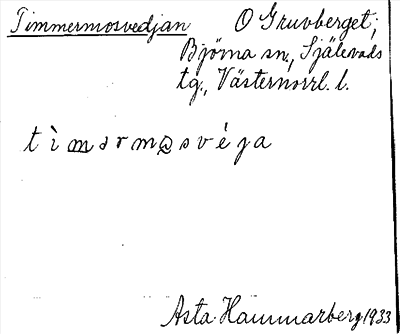 Timmermosvedjan O Gruvberget;
Björna sn., Själevads
tg., Västernorrl. l.
tìmərmɷsvéja
Asta Hammarberg 1933